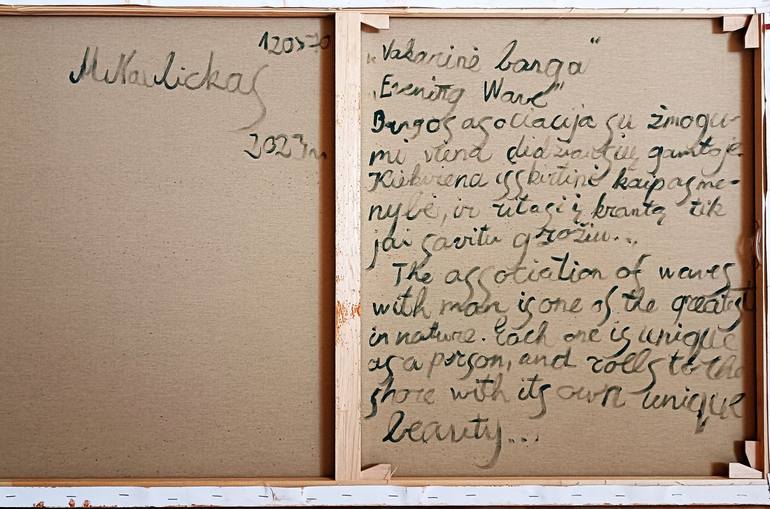 120×70
M. Naulickas
2023 m
„Vakarinė banga“
„Evening Wave“
Bangos asociacija su žmogu-
mi viena didžiausių gamtoje.
Kiekviena išskirtinė kaip asme-
nybė, ir ritasi į krantą tik
jai savitu grožiu...
The association of waves
with man is one of the greatest
in nature. Each one is unique
as a person, and rolls to the
shore with its own unique
beauty...